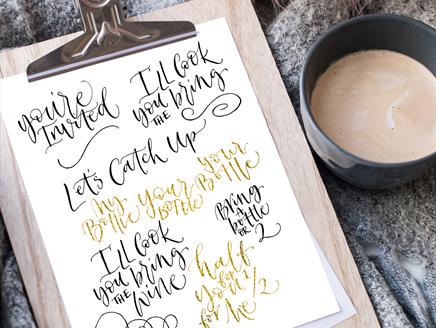 you're
Invited
I'll Cook
you bring
THE
Let's Catch Up
My
Bottle
Your
BOTTLE
your
Bottle
Bring
A
bottle
OR 2
I'll Cook
you bring
THE Wine
half
for
you 1/2
for Me